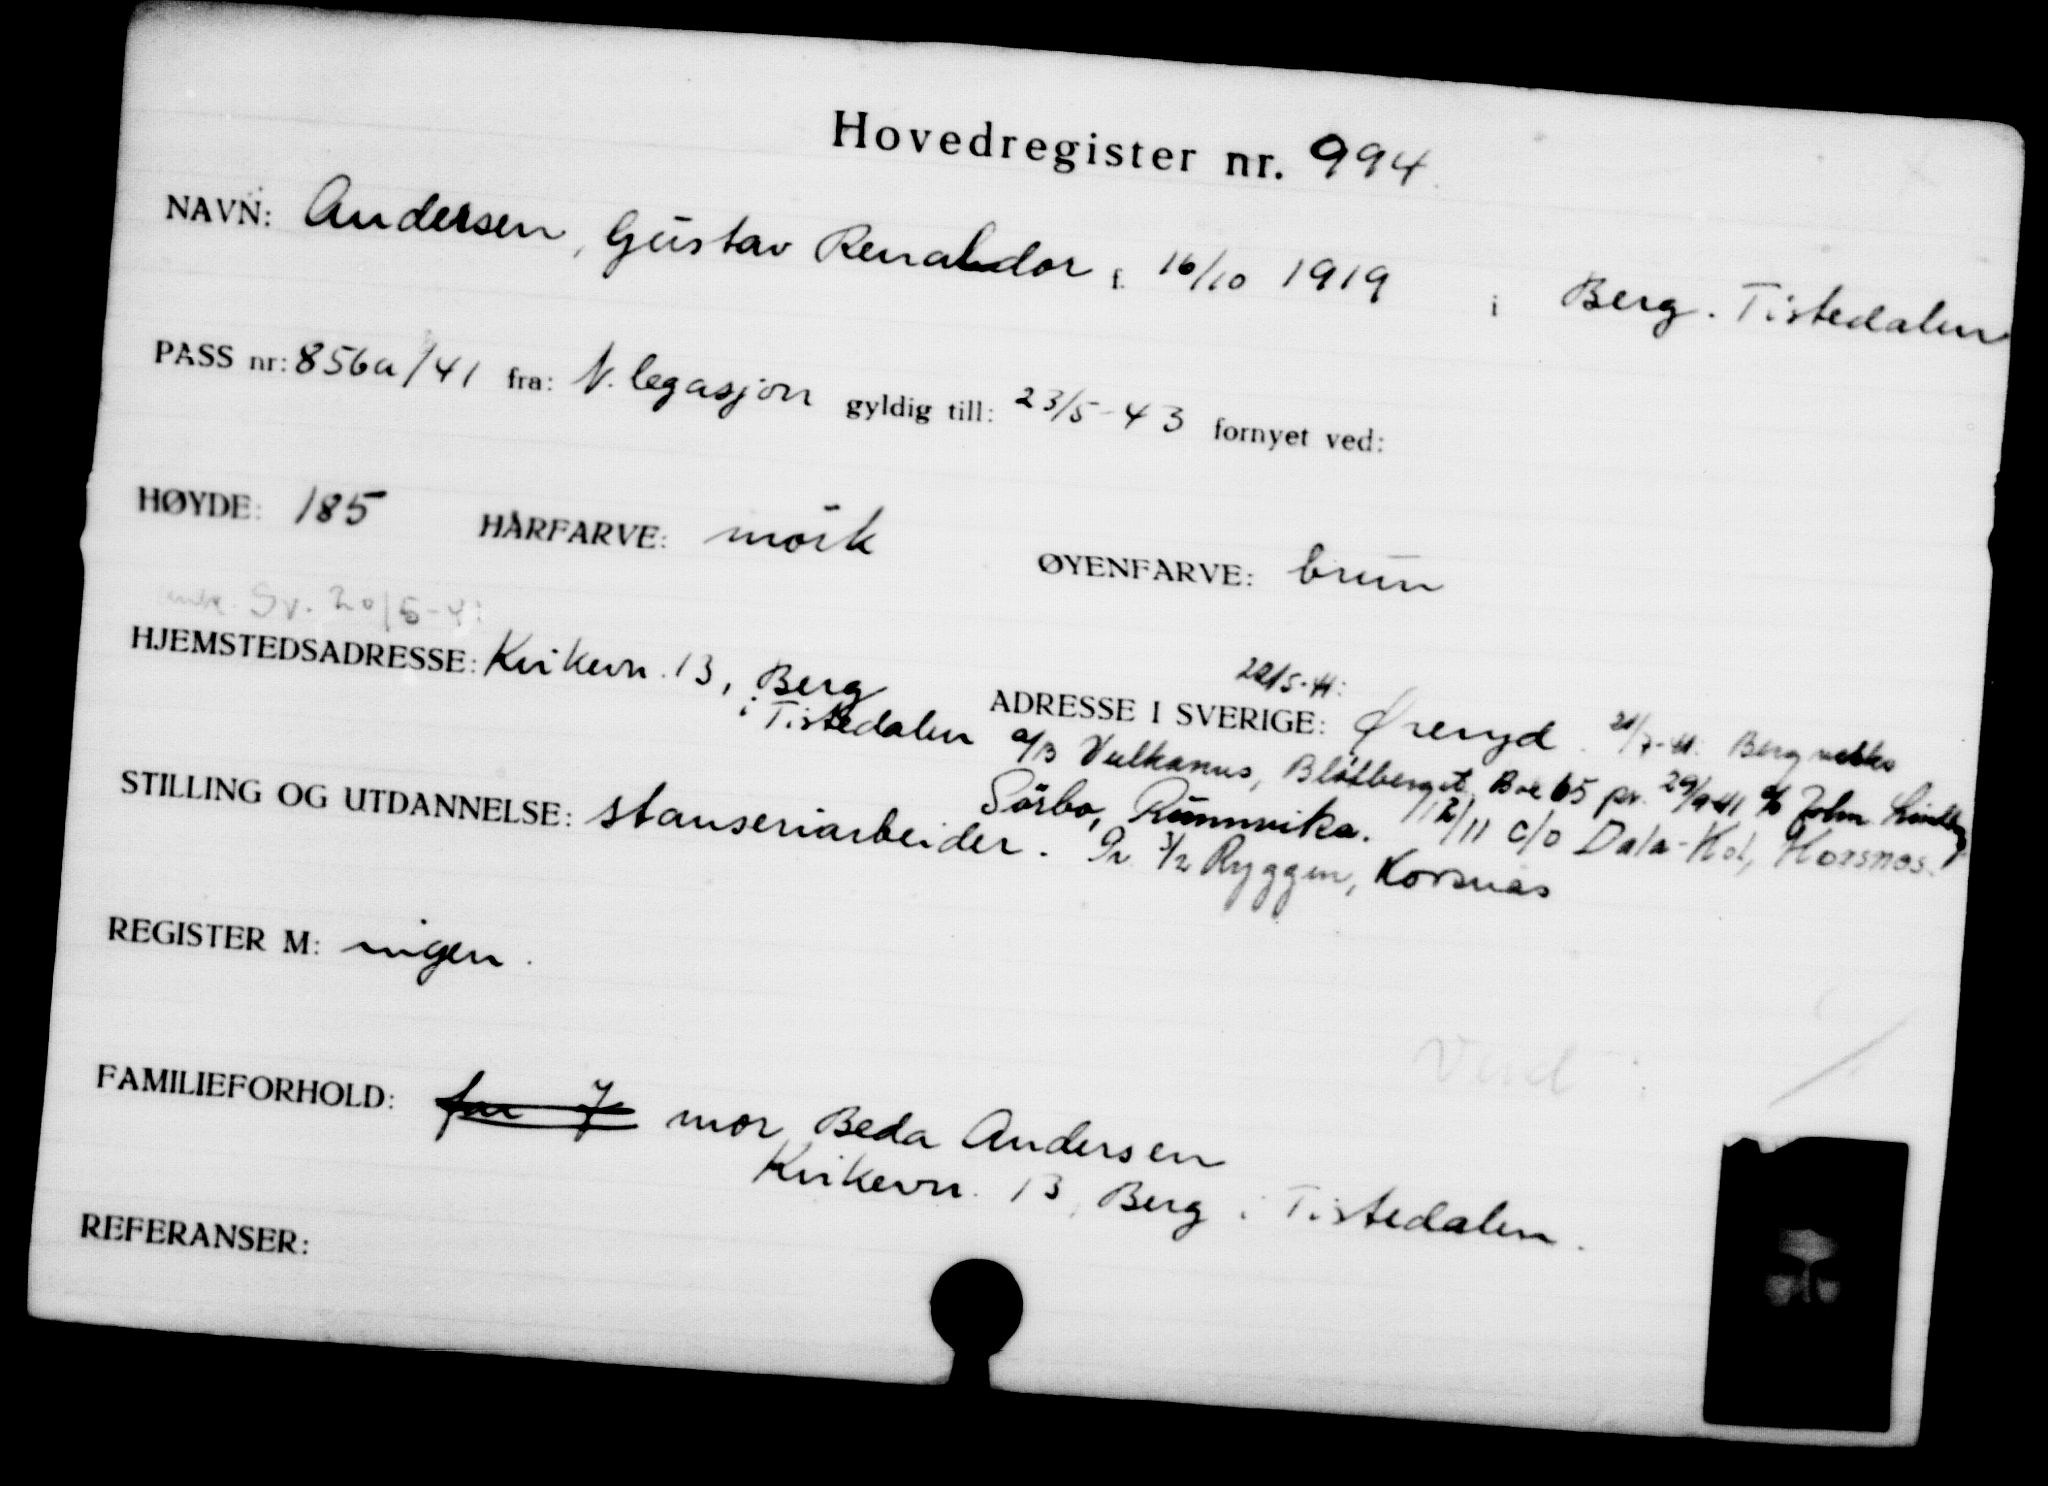 Hovedregister nr. 994
NAVN: Andersen, Gustav f. 16/10 1919 i Berg. Tistedalen
PASS nr: 856a/41 fra: N. legasjon gyldig till: 23/5-43 fornyet ved:
HØYDE: 185 HÅRFARVE: mörk ØYENFARVE: brun
Sv. 20/5-41
HJEMSTEDSADRESSE: Kvikevn. 13, Berg
i Tistedalen
ADRESSE I SVERIGE: Øreryd. Berg
A/B Vulkanus, Blötberget Box 65 pr. 29/9-41 c/o John
Sörbo, 12/11 c/o Dala-Kol, Korsnas.
Pr 3/2 Ryggen, Korsnäs
STILLING OG UTDANNELSE: stanseriarbeider.
REGISTER M: ingen.
FAMILIEFORHOLD: far mor Beda Andersen
Kvikevn. 13, Berg i Tistedalen.
REFERANSER: